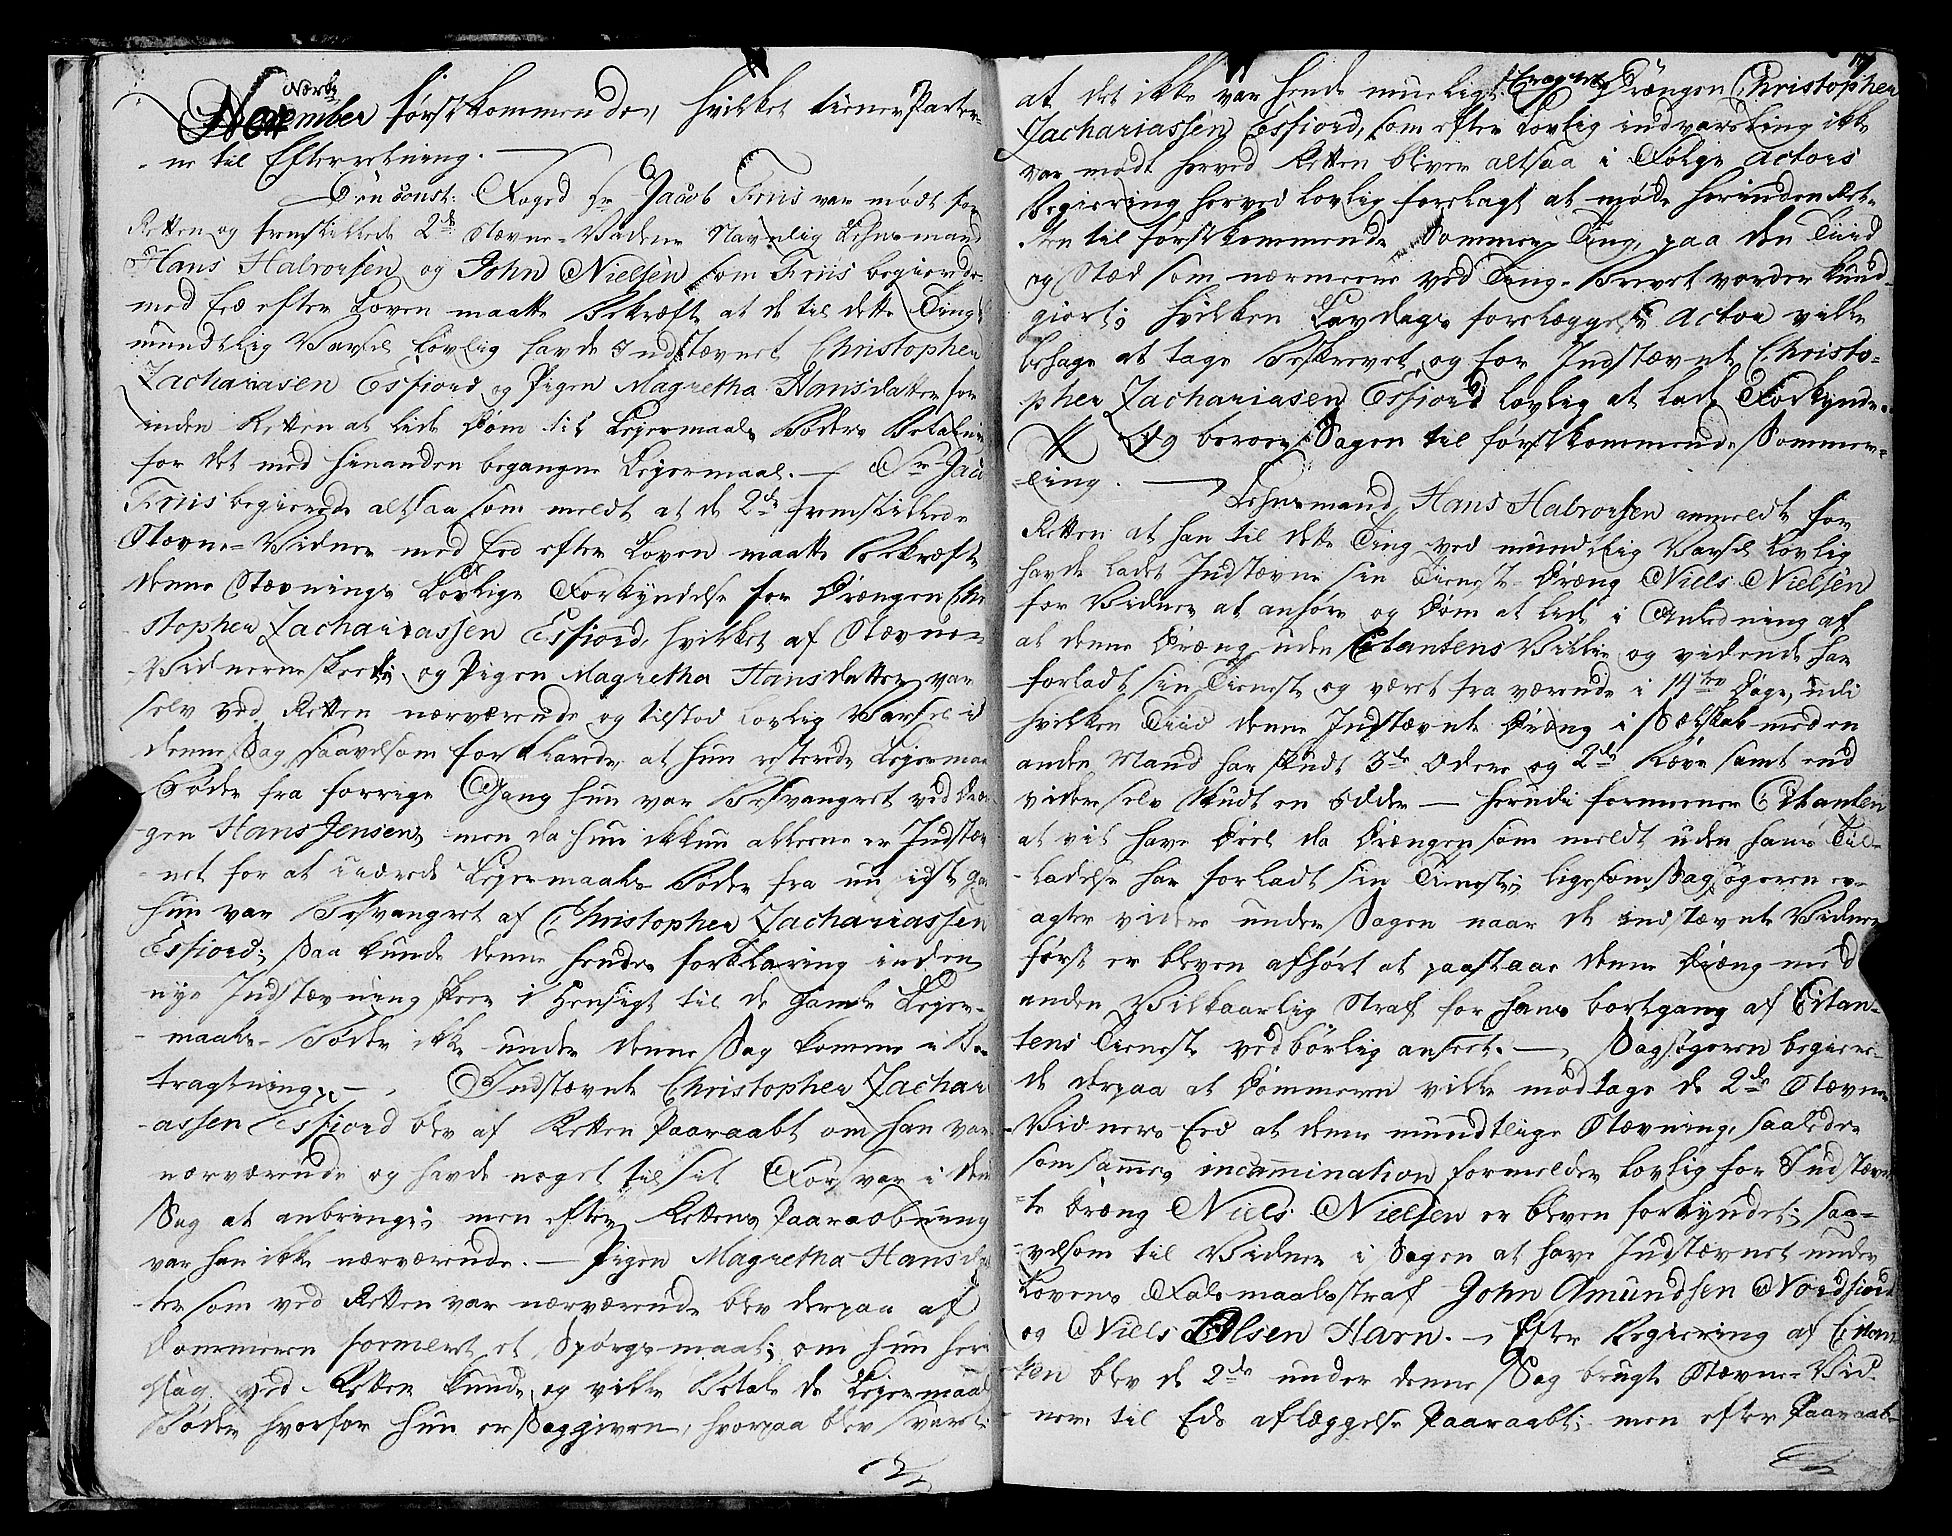 Nærk:
November førstkommende, hvilket tiener Parter-
ne til Efterretning.
Den const: Foged Hr Jacob Friis var mødt for
Retten og fremstillede 2de Stævne-Vidner Navnlig Lehnsmand
Hans Halvorsen og John Nielsen som Friis begierde
med Eed efter Loven maatte Bekræfte at de til dette Ting
mundtlig Varsel lovlig havde Indstævnet Christopher
Zachariasen Esfiord og Pigen Magretha Hansdatter for
inden Retten at lide Dom til Leiermaals Bøders Betaling
for det med hinanden begangne Leiermaal. — Sr Jacob
Friis begierede altsaa som meldt at de 2de fremstillede
Stævne-Vidner med Eed efter Loven maatte Bekræfte
denne Stævnings lovlige Forkyndelse for Drængen Chri
stopher Zachariassen Esfiord, hvilket af Stævne-
Vidnerne skeede, og Pigen Magretha Hansdatter var
selv ved Retten nærværende og tilstod lovlig Varsel i
denne Sag saavelsom forklarede, at hun resterede Leiermaals
Bøder fra forrige Gang hun var Besvangret ved Dræn
gen Hans Jensen, men da hun ikkun alleene er Indstæv
net for at udrede Leiermaals Bøder fra nu sidste Gang
hun var Besvangret af Christopher Zachariassen
Esfiord; saa kunde denne hendes forklaring inden
nye Indstævning skeer i Hensigt til de gamle Leier-
maals-Bøder ikke under denne Sag komme i Be
tragtning. —, Indstævnte Christopher Zachari
assen Esfiord blev af Retten Paaraabt om han var
nærværende og havde noget til sit Forsvar i den
Sag at anbringe; men efter Rettens Paaraabning
var han ikke nærværende. — Pigen Magretha Hansdat
ter som ved Retten var nærværende blev derpaa af
Dommeren formeret et Spørgsmaal; om hun her i
Dag ved Retten kunde og ville Betale de Leiermaals
Bøder hvorfor hun er Saggiven, hvorpaa blev svaret
at det ikke var hende mueligt. Drængen Christopher
Zachariassen Esfiord, som efter Lovlig indvarsling ikke
var mødt herved Retten bliver altsaa i Følge Actors
Begiering herved lovlig forelagt at møde herinden Ret-
ten til førstkommende Sommer Ting, paa den Tiid
og Stæd som nærmere ved Ting-Brevet vorder kund
giort; hvilken Lavdags forelæggelse Actor ville
behage at tage Beskrevet og for Indstævnte Christo-
pher Zachariasen Esfiord lovlig at lade Forkynde.
Og beroer Sagen til førstkommende Sommer-
ting. —
Lehnsmand Hans Halvorsen anmeldte for
Retten at han til dette Ting ved mundtlig Varsel lovlig
havde ladet Indstævne sin Tieneste-Dræng Niels Nielsen
for Vidner at anhøre og Dom at lide i Anledning af
at denne Dræng uden Citantens Villie og vidende har
forladt sin Tieneste og været fra værende i 14ten Dage, udi
hvilken Tiid denne Indstævnte Dræng i Selskab med en
anden Mand har skudt 3de Odere og 2de Ræve samt end
videre selv skudt en Odder — herudi formener Citanten
at vil have Deel da Drængen som meldt uden hans Til-
ladelse har forladt sin Tieneste; ligesom Sagsøgeren er-
agter videre under Sagen naar de indstævnte Vidner
først er bleven afhørt at paastaae denne Dræng med
anden Vilkaarlig Straf for hans bortgang af Citan-
tens Tieneste vedbørlig anseet. —, Sagsøgeren begiere-
de derpaa at Dommeren ville modtage de 2de Stævne
Vidners Eed at denne mundtlige Stævning, saaledes
som sammes incammination formelder lovlig for Indstævn
te Dræng Niels Nielsen er bleven forkyndet; saa-
velsom til Vidner i Sagen at have Indstævnet under
Lovens Falsmaals straf John Amundsen Nordfiord
og Niels Olsen Harn. —, Efter Begiering af Citan
ten blev de 2de under denne Sag brugte Stævne-Vid
ner til Eds aflæggelse Paaraabt; men efter Paaraab